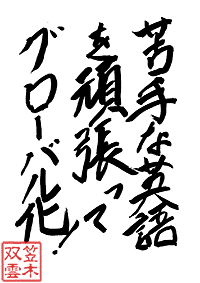 苦手な英語
を頑張って
グローバル化!
笠木
双雲